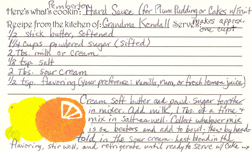 Pemberton
Here's what's cookin': Hard Sauce (for Plum Pudding or Cakes w/fruit
Recipe from the kitchen of: Grandma Kendall Serves: makes approx
one cupt
1/2 stick butter, softened
1 1/4 cups powdered sugar (sifted)
2 Tbs. milk or cream
1/8 tsp salt
2 Tbs. sour cream
1/2 tsp flavoring (your preference: vanilla, rum, or fresh lemon juice)
Cream soft butter and powd. sugar together
in mixer. Add milk 1 Tbs. at a time &
mix in salt as well. Collect whatever mix
is on beaters and add to bowl. Then by hand
fold in the sour cream. Last blend in the
flavoring, stir well, and refrigerate until ready to serve w/cake